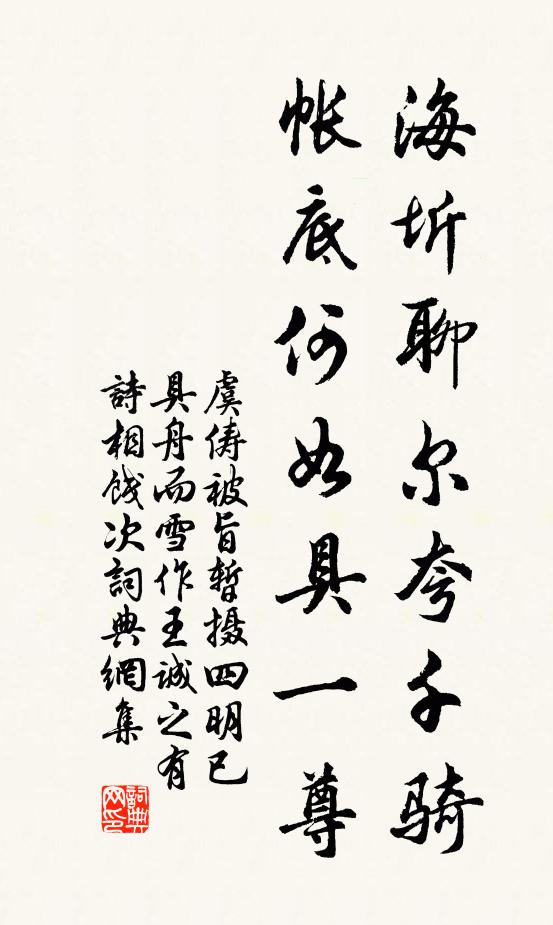 海圻聊尔夸千骑
帐底何如具一尊
虞俦被旨暂摄四明已
具舟而雪作王诚之有
诗相饯次词典网集
詞典
网印